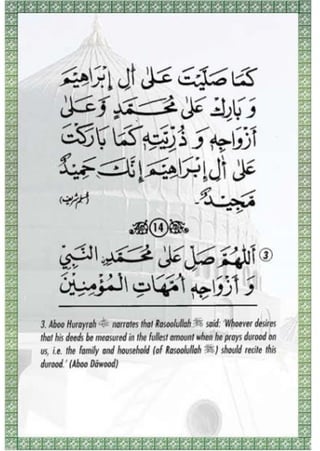 كَمَا صَلَّيْتَ عَلىٰ اٰلِ اِبْرَاهِيْمَ
وَ بَارِكْ عَلىٰ مُحَمَّدٍ وَّعَلىٰ
اَزْوَاجِهٖ وَ ذُرِّيَّتِهٖ كَمَا بَارَكْتَ
عَلىٰ اٰلِ اِبْرَاهِيْمَ اِنَّكَ حَمِيْدٌ
مَّجِيْدٌ۔ (مسلم شریف)
14
3 اَللّٰهُمَّ صَلِّ عَلىٰ مُحَمَّدِ ۣالنَّبِيِّ
وَ اَزْوَاجِهٖ اُمَّهَاتِ الْمُؤْمِنِيْنَ
3. Aboo Hurayrah narrates that Rasoolullah ﷺ said: 'Whoever desires
that his deeds be measured in the fullest amount when he prays durood on
us, i.e. the family and household (of Rasoolullah ﷺ) should recite this
durood.' (Aboo Dāwood)